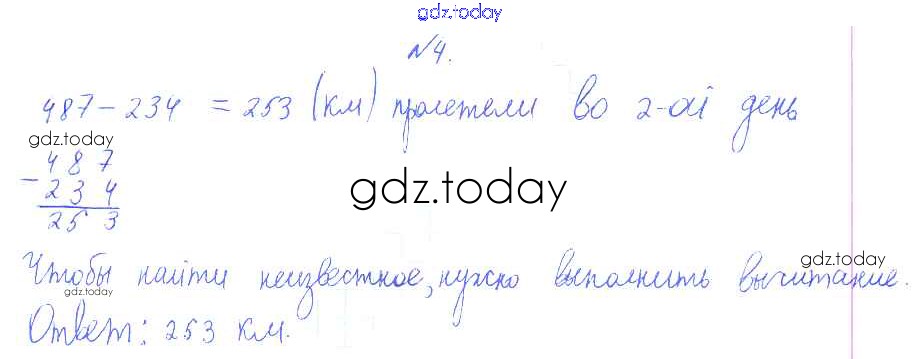 gdz.today
№4.
487 - 234 = 253 (км) пролетели во 2-ой день
gdz.today
- 487
234
253
gdz.today
gdz.today
Чтобы найти неизвестное, нужно выполнить вычитание.
gdz.today
Ответ: 253 км.